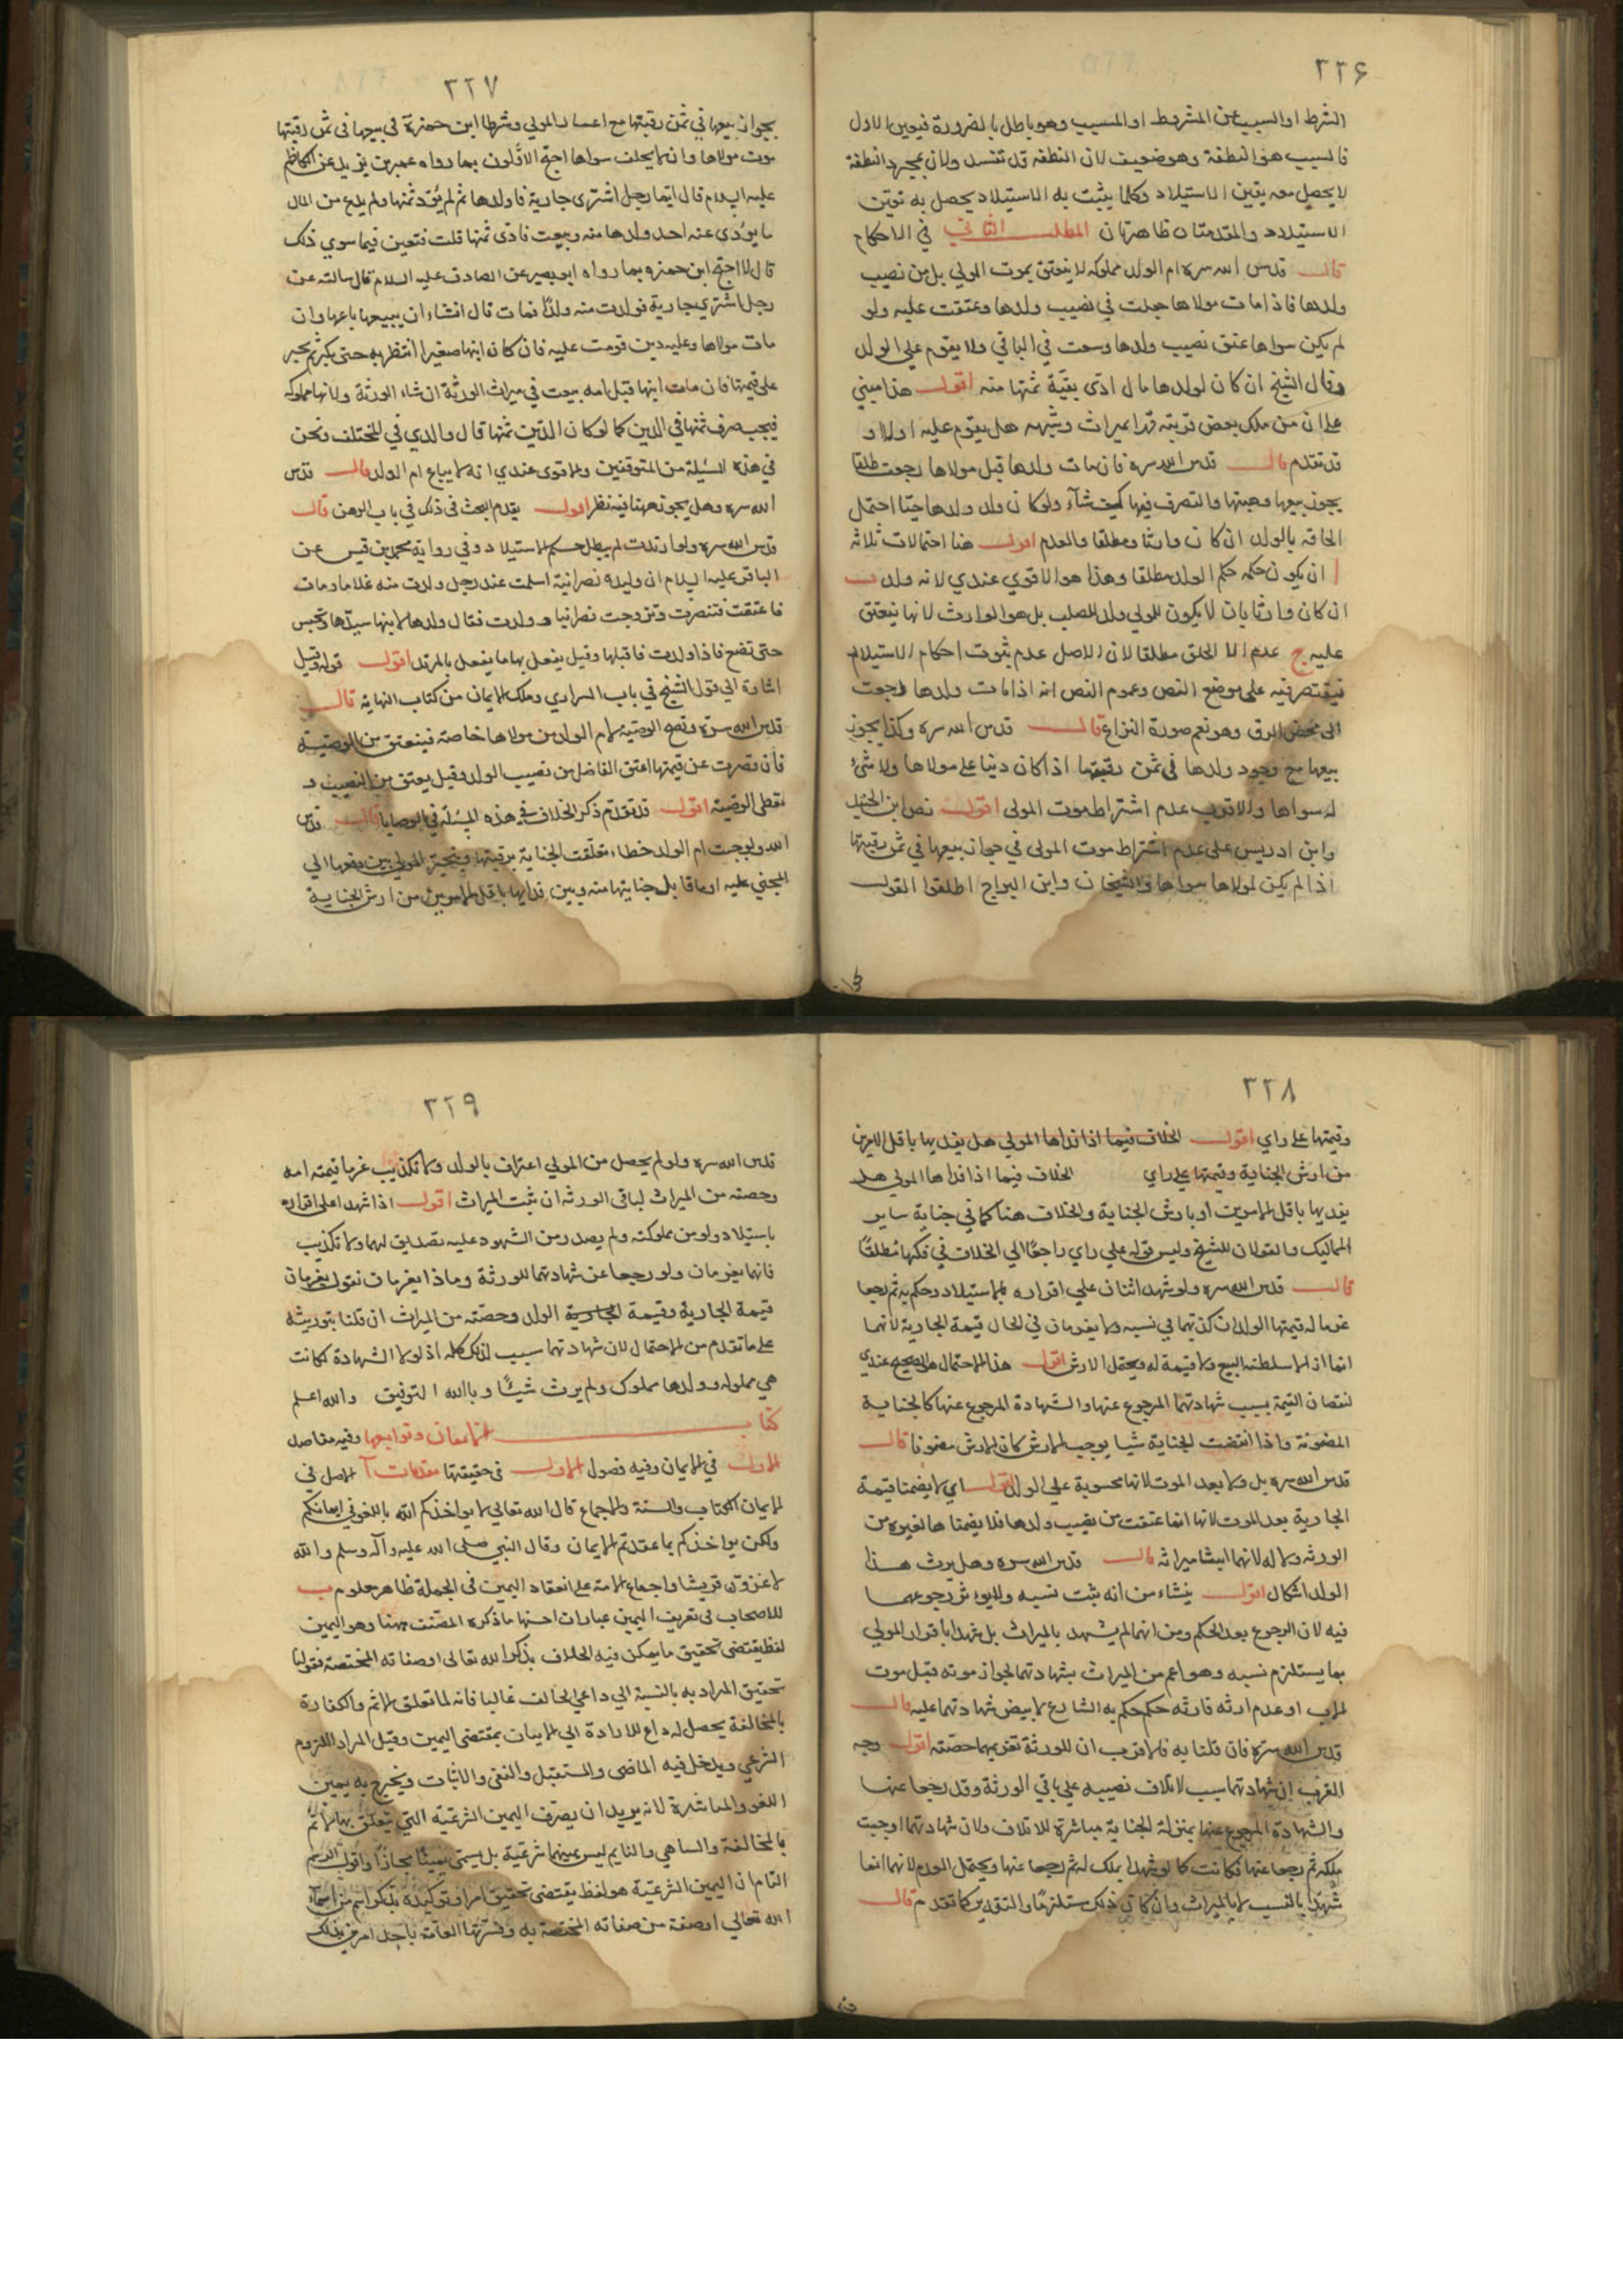 ٢٢۶
الشرط او السبب عن المشروط او المسبب وهو باطل بالضرورة فيعين الاول
فالسبب هو النطفة وهو ضعيف لان النطفة قد تفسد ولان بمجرد النطفة
لا يحصل معه يقين الاستيلاد وكلما يثبت به الاستيلاد يحصل به تعين
الاستيلاد والمقدمتان ظاهرتان المطلب الثاني في الاحكام
قال قدس الله سره ام الولد مملوكه لا ينعتق بموت المولى بل من نصيب
ولدها فاذا مات مولاها جعلت في نصيب ولدها وعتقت عليه ولو
لم يكن سواها عتق نصيب ولدها وسعت في الباقي ولا يقوم على الولد
وقال الشيخ ان كان لولدها مال ادى بقية ثمنها منه اقول هذا مبني
على ان من ملك بعض قريبه قهرا كميراث وشبهه هل يقوم عليه ام لا و
قد تقدم قال قدس الله سره فان مات ولدها قبل مولاها رجعت طلقا
يجوز بيعها وهبتها والتصرف فيها كيف شاء ولو كان ولد ولدها حيا احتمل
الحاقه بالولد ان كان وارثا ومطلقا والعدم اقول هنا احتمالات ثلاثة
ا ان يكون حكمه حكم الولد مطلقا وهذا هو الاقوى عندي لانه ولد ب
ان كان وارثا بان لا يكون للمولى ولد للصلب بل هو الوارث لانها ينعتق
عليه ج عدم الا الحلق مطلقا لان الاصل عدم ثبوت احكام الاستيلاد
فيقتصر فيه على موضع النص وعموم النص انه اذا مات ولدها رجعت
الى محض الرق وهو نعم صورة النزاع قال قدس الله سره وكذا يجوز
بيعها مع وجود ولدها في ثمن رقبتها اذا كان دينا على مولاها ولا شئ
له سواها والاقرب عدم اشتراط موت المولى اقول نص ابن الجنيد
وابن ادريس على عدم اشتراط موت المولى في جواز بيعها في ثمن رقبتها
اذا لم يكن لمولاها سواها والشيخان وابن البراج اطلقوا القول
٢٢٧
بجواز بيعها في ثمن رقبتها مع اعسار المولى وشرط ابن حمزة في بيعها في ثمن رقبتها
موت مولاها وان لا يخلف سواها احتج الاولون بما رواه عمر بن يزيد عن الكاظم
عليه السلام قال ايما رجل اشترى جارية فاولدها ثم لم يؤد ثمنها ولم يدع من المال
ما يؤدى عنه اخذ ولدها منه وبيعت فادى ثمنها قلت فتبعن فيما سوى ذلك
قال لا احتج ابن حمزه بما رواه ابو بصير عن الصادق عليه السلام قال سالته عن
رجل اشترى جارية فولدت منه ولدا فمات قال ان شاء ان يبيعها باعها وان
مات مولاها وعليه دين قومت عليه فان كان ابنها صغيرا انتظر به حتى يكبر ثم يجبر
على قيمتها فان مات ابنها قبل امه بيعت في ميراث الورثة ان شاء الورثة ولانها مملوكه
فيجب صرف ثمنها في الدين كما لو كان الدين ثمنها قال والدي في المختلف ونحن
في هذه المسئلة من المتوقفين والاقوى عندي انه لا يباع ام الولد قال قدس
الله سره وهل يجوز رهنها فيه نظر اقول يقدم البحث في ذلك في باب الرهن قال
قدس الله سره ولو ارتدت لم يبطل حكم الاستيلاد وفي رواية محمد بن قيس عن
الباقر عليه السلام ان وليدة نصرانية اسلمت عند رجل ولدت منه غلاما ومات
فاعتقت فتنصرت وتزوجت نصرانيا وولدت فقال ولدها لابنها سيدها وتحبس
حتى تضع فاذا ولدت فاقتلها وقيل يفعل بها ما يفعل بالمرتد اقول قوله وقيل
اشارة الى قول الشيخ في باب السراري وملك الايمان من كتاب النهاية قال
قدس الله سره وتصح الوصية لام الولد من مولاها خاصة فينعتق من الوصية
فان قصرت عن قيمتها اعتق الفاضل من نصيب الولد وقيل يعتق من النصيب و
تعطى الوصية اقول قد تقدم ذكر الخلاف في هذه المسئلة في الوصايا قال قدس
الله ولو جنت ام الولد خطاء تعلقت الجناية برقبتها ويتخير المولى بين دفعها الى
المجني عليه او ما قابل جنايتها منه وبين فدائها باقل الامرين من ارش الجناية
٢٢٨
وقيمتها على راي اقول الخلاف فيما اذا فداها المولى هل يفديها باقل الامرين
من ارش الجناية وقيمتها على راي الخلاف فيما اذا فداها المولى هل
يفديها باقل الامرين او بارش الجناية والخلاف هنا كما في جناية ساير
المماليك والقولان للشيخ وليس قوله على راي راجعا الى الخلاف في فكها مطلقا
قال قدس الله سره ولو شهد اثنان على اقراره بالاستيلاد وحكم به ثم رجعا
غرما له قيمتها الولد ان كذبهما في نسبه ولا يغرمان في الحال قيمة الجارية لانهما
انما ازالا سلطنة البيع ولا قيمة له ويحتمل الارش اقول هذا الاحتمال هو الصحيح عندي
لنقصان القيمة بسبب شهادتهما المرجوع عنها والشهادة المرجوع عنها كالجناية
المضمونة واذا انقصت الجناية شيا يوجب الارش كان الارش مضمونا قال
قدس الله سره بل ولا بعد الموت لانها محسوبة على الولد اقول اي لا يضمنا قيمة
الجارية بعد الموت لانها انما عتقت من نصيب ولدها فلا يضمناها لغيره من
الورثة ولا له لانهما اثبتا ميراثه قال قدس الله سره وهل يرث هذا
الولد اشكال اقول ينشاء من انه يثبت نسبه ولا يؤثر رجوعهما
فيه لان الرجوع بعد الحكم ومن انهما لم يشهدا بالميراث بل شهدا باقرار المولى
بما يستلزم نسبه وهو اعم من الميراث بشهادتهما لجواز موته قبل موت
الاب او عدم ارثه فارثه حكم حكم به الشارع لا ببعض شهادتهما عليه قال
قدس الله سره فان قلنا به فالاقرب ان للورثة تغريمهما حصته اقول وجه
القرب ان شهادتهما سبب لاتلاف نصيبه على باقي الورثة وقد رجعا عنها
والشهادة المرجوع عنها بمنزلة الجناية مباشرة للاتلاف ولان شهادتهما اوجبت
ملكه ثم رجعا عنها فكانت كما لو شهدا بملك له ثم رجعا عنها ويحتمل العدم لانهما انما
شهدا بالنسب لا بالميراث وان كان ذلك مستلزما والتقديم كما تقدم قال
٢٢٩
قدس الله سره ولو لم يحصل من المولى اعتراف بالولد ولا تكذيب غرما قيمته امه
وحصته من الميراث لباقي الورثه ان ثبت الميراث اقول اذا شهدا على اقراره
باستيلاد ولو من مملوكته ولم يصدر من الشهود عليه تصديق لهما ولا تكذيب
فانهما يغرمان ولو رجعا عن شهادتهما للورثة وماذا يغرمان نقول يغرمان
قيمة الجارية وقيمة الجارية الولد وحصته من الميراث ان قلنا بتوريثه
على ما تقدم من الاحتمال لان شهادتهما سبب لذلك كله اذ لولا الشهادة لكانت
هي مملوله وولدها مملوك ولم يرث شيئا وبالله التوفيق والله اعلم
كتاب الايمان وتوابعها وفيه مقاصد
الاول في الايمان وفيه فصول الاول في حقيقتها مقدمات آ الاصل في
الايمان الكتاب والسنة والاجماع قال الله تعالى لا يواخذكم الله باللغو في ايمانكم
ولكن يواخذكم بما عقدتم الايمان وقال النبي صلى الله عليه وآله وسلم والله
لاغزون قريشا واجماع الامة على انعقاد اليمين في الجملة ظاهر معلوم ب
للاصحاب في تعريف اليمين عبارات احسنها ما ذكره المصنف ههنا وهو اليمين
لفظ يقتضي تحقيق ما يمكن فيه الخلاف بذكر الله تعالى او صفاته المختصة فقولنا
تحقيق المراد به بالنسبة الى داعي الحالف غالبا فانه لما تعلق الاثم والكفارة
بالمخالفة يحصل له داع للارادة الى الاتيان بمقتضى اليمين وقيل المراد اللزوم
الشرعي ويدخل فيه الماضي والمستقبل والنفي والاثبات ويخرج به يمين
اللغو والمناشدة لانه يريد ان يعرف اليمين الشرعية التي يتعلق بها الاثم
بالمخالفة والساهي والنايم ليس يمينهما شرعية بل يسمى يمينا مجازا واقول الرسم
التام ان اليمين الشرعية هو لفظ يقتضي تحقيق امر او توكيده بذكر اسم من اسماء
الله تعالى او صفة من صفاته المختصة به وفسرتها العامة باحد امرين بذلك